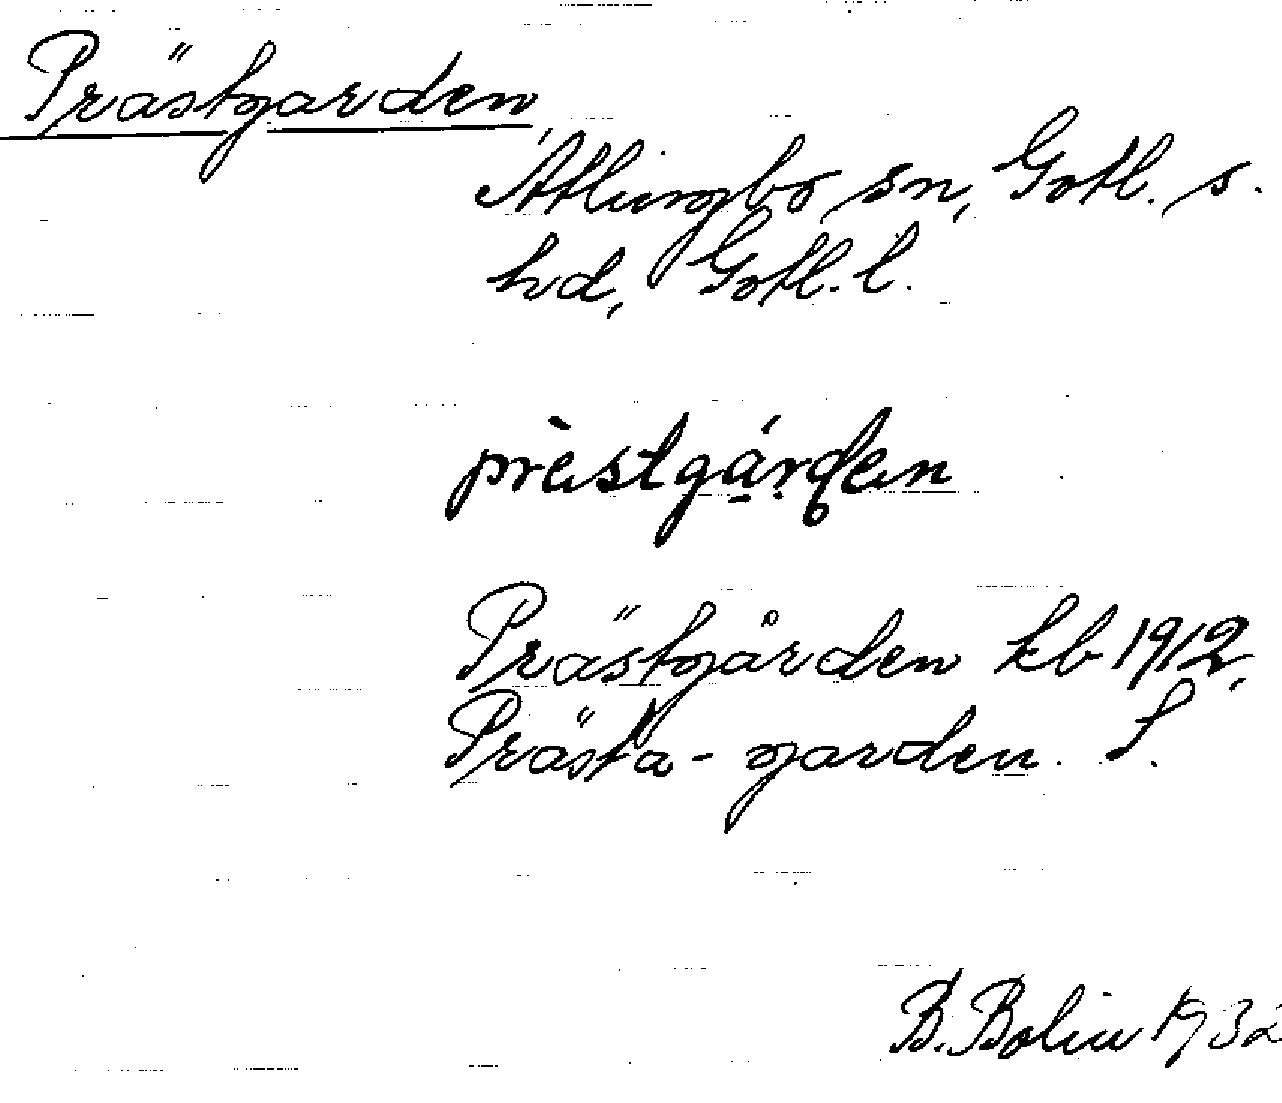 Prästgarden,
Atlingbo sn, Gotl. s.
hd, Gotl. l.
prästgárden
Prästgården kb 1912,
Prästa-garden. S.
B. Bolin 1932